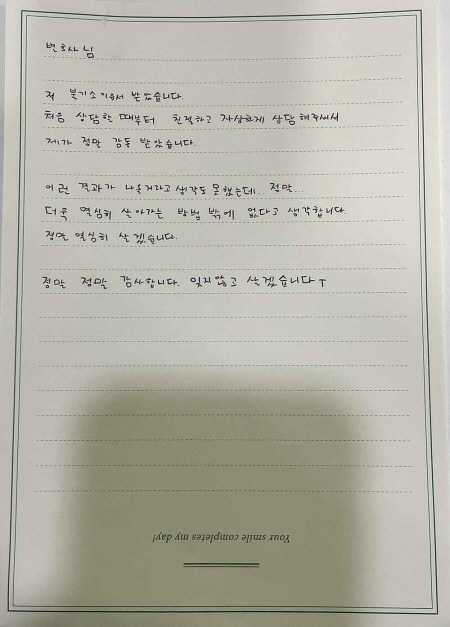 변호사님
저 불기소이유서 받았습니다.
처음 상담한 때부터 친절하고 자상하게 상담해주셔서
제가 정말 감동 받았습니다.
이런 결과가 나올거라고 생각도 못했는데.. 정말...
더욱 열심히 살아가는 방법 밖에 없다고 생각합니다.
정말 열심히 살겠습니다.
정말 정말 감사합니다. 잊지않고 살겠습니다ㅜ
Your smile completes my day!